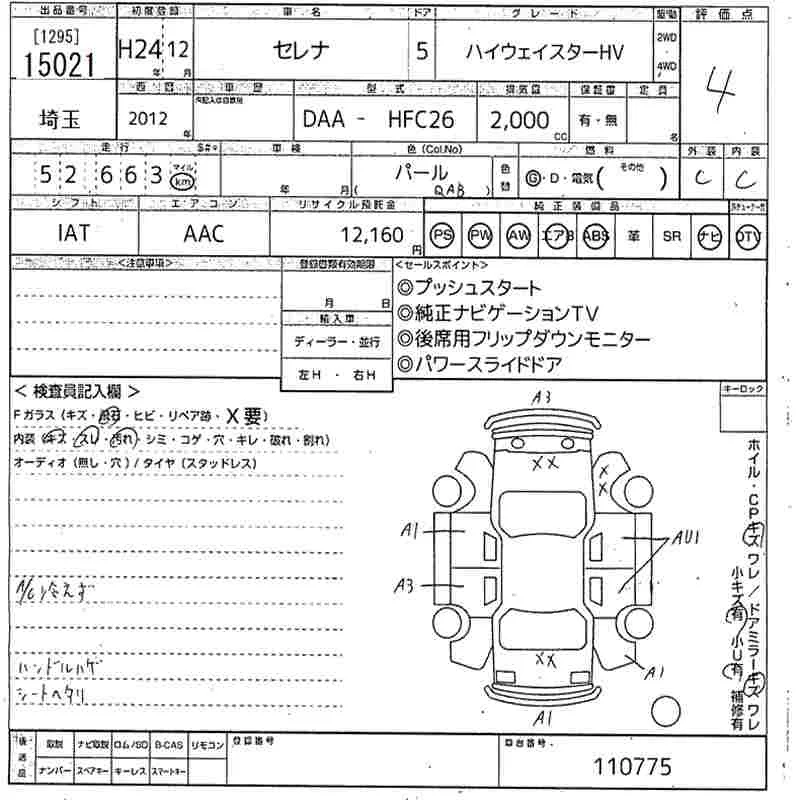 出品番号 初度登録 車名 ドア グレード 駆動 評価点
[1295]
15021 H24年 12月 セレナ 5 ハイウェイスターHV 2WD 4WD 4
西暦 車歴 型式 排気量 保証書 定員
埼玉 2012年 DAA - HFC26 2,000cc 有・無 名
走行 S#* 車検 色(Col.No) 燃料 外装 内装
52663 マイル km 年 月 パール (QAB) 色替 G・D・電気( その他 ) C C
シフト エアコン リサイクル預託金 純正装備品
IAT AAC 12,160円 PS PW AW エアB ABS 革 SR ナビ DTV
<注意事項> 登録書類有効期限 <セールスポイント>
月 日
輸入車
ディーラー・並行
左H・右H
◎プッシュスタート
◎純正ナビゲーションTV
◎後席用フリップダウンモニター
◎パワースライドドア
キーロック
< 検査員記入欄 >
Fガラス(キズ・飛石・ヒビ・リペア跡・X要)
内装(キズ・スレ・汚れ・シミ・コゲ・穴・キレ・破れ・割れ)
オーディオ(無し・穴)/タイヤ(スタッドレス)
A/C冷えず
ハンドルハゲ
シートヘタリ
A3
XX
X
X
A1
AU1
A3
XX
A1
A1
ホイル・CPキズ ワレ/ドアミラーキズ ワレ
小キズ有 小U有 補修有
後送品 取説 ナビ取説 ロム/SD B-CAS リモコン 登録番号 車台番号
ナンバー スペアキー キーレス スマートキー
110775